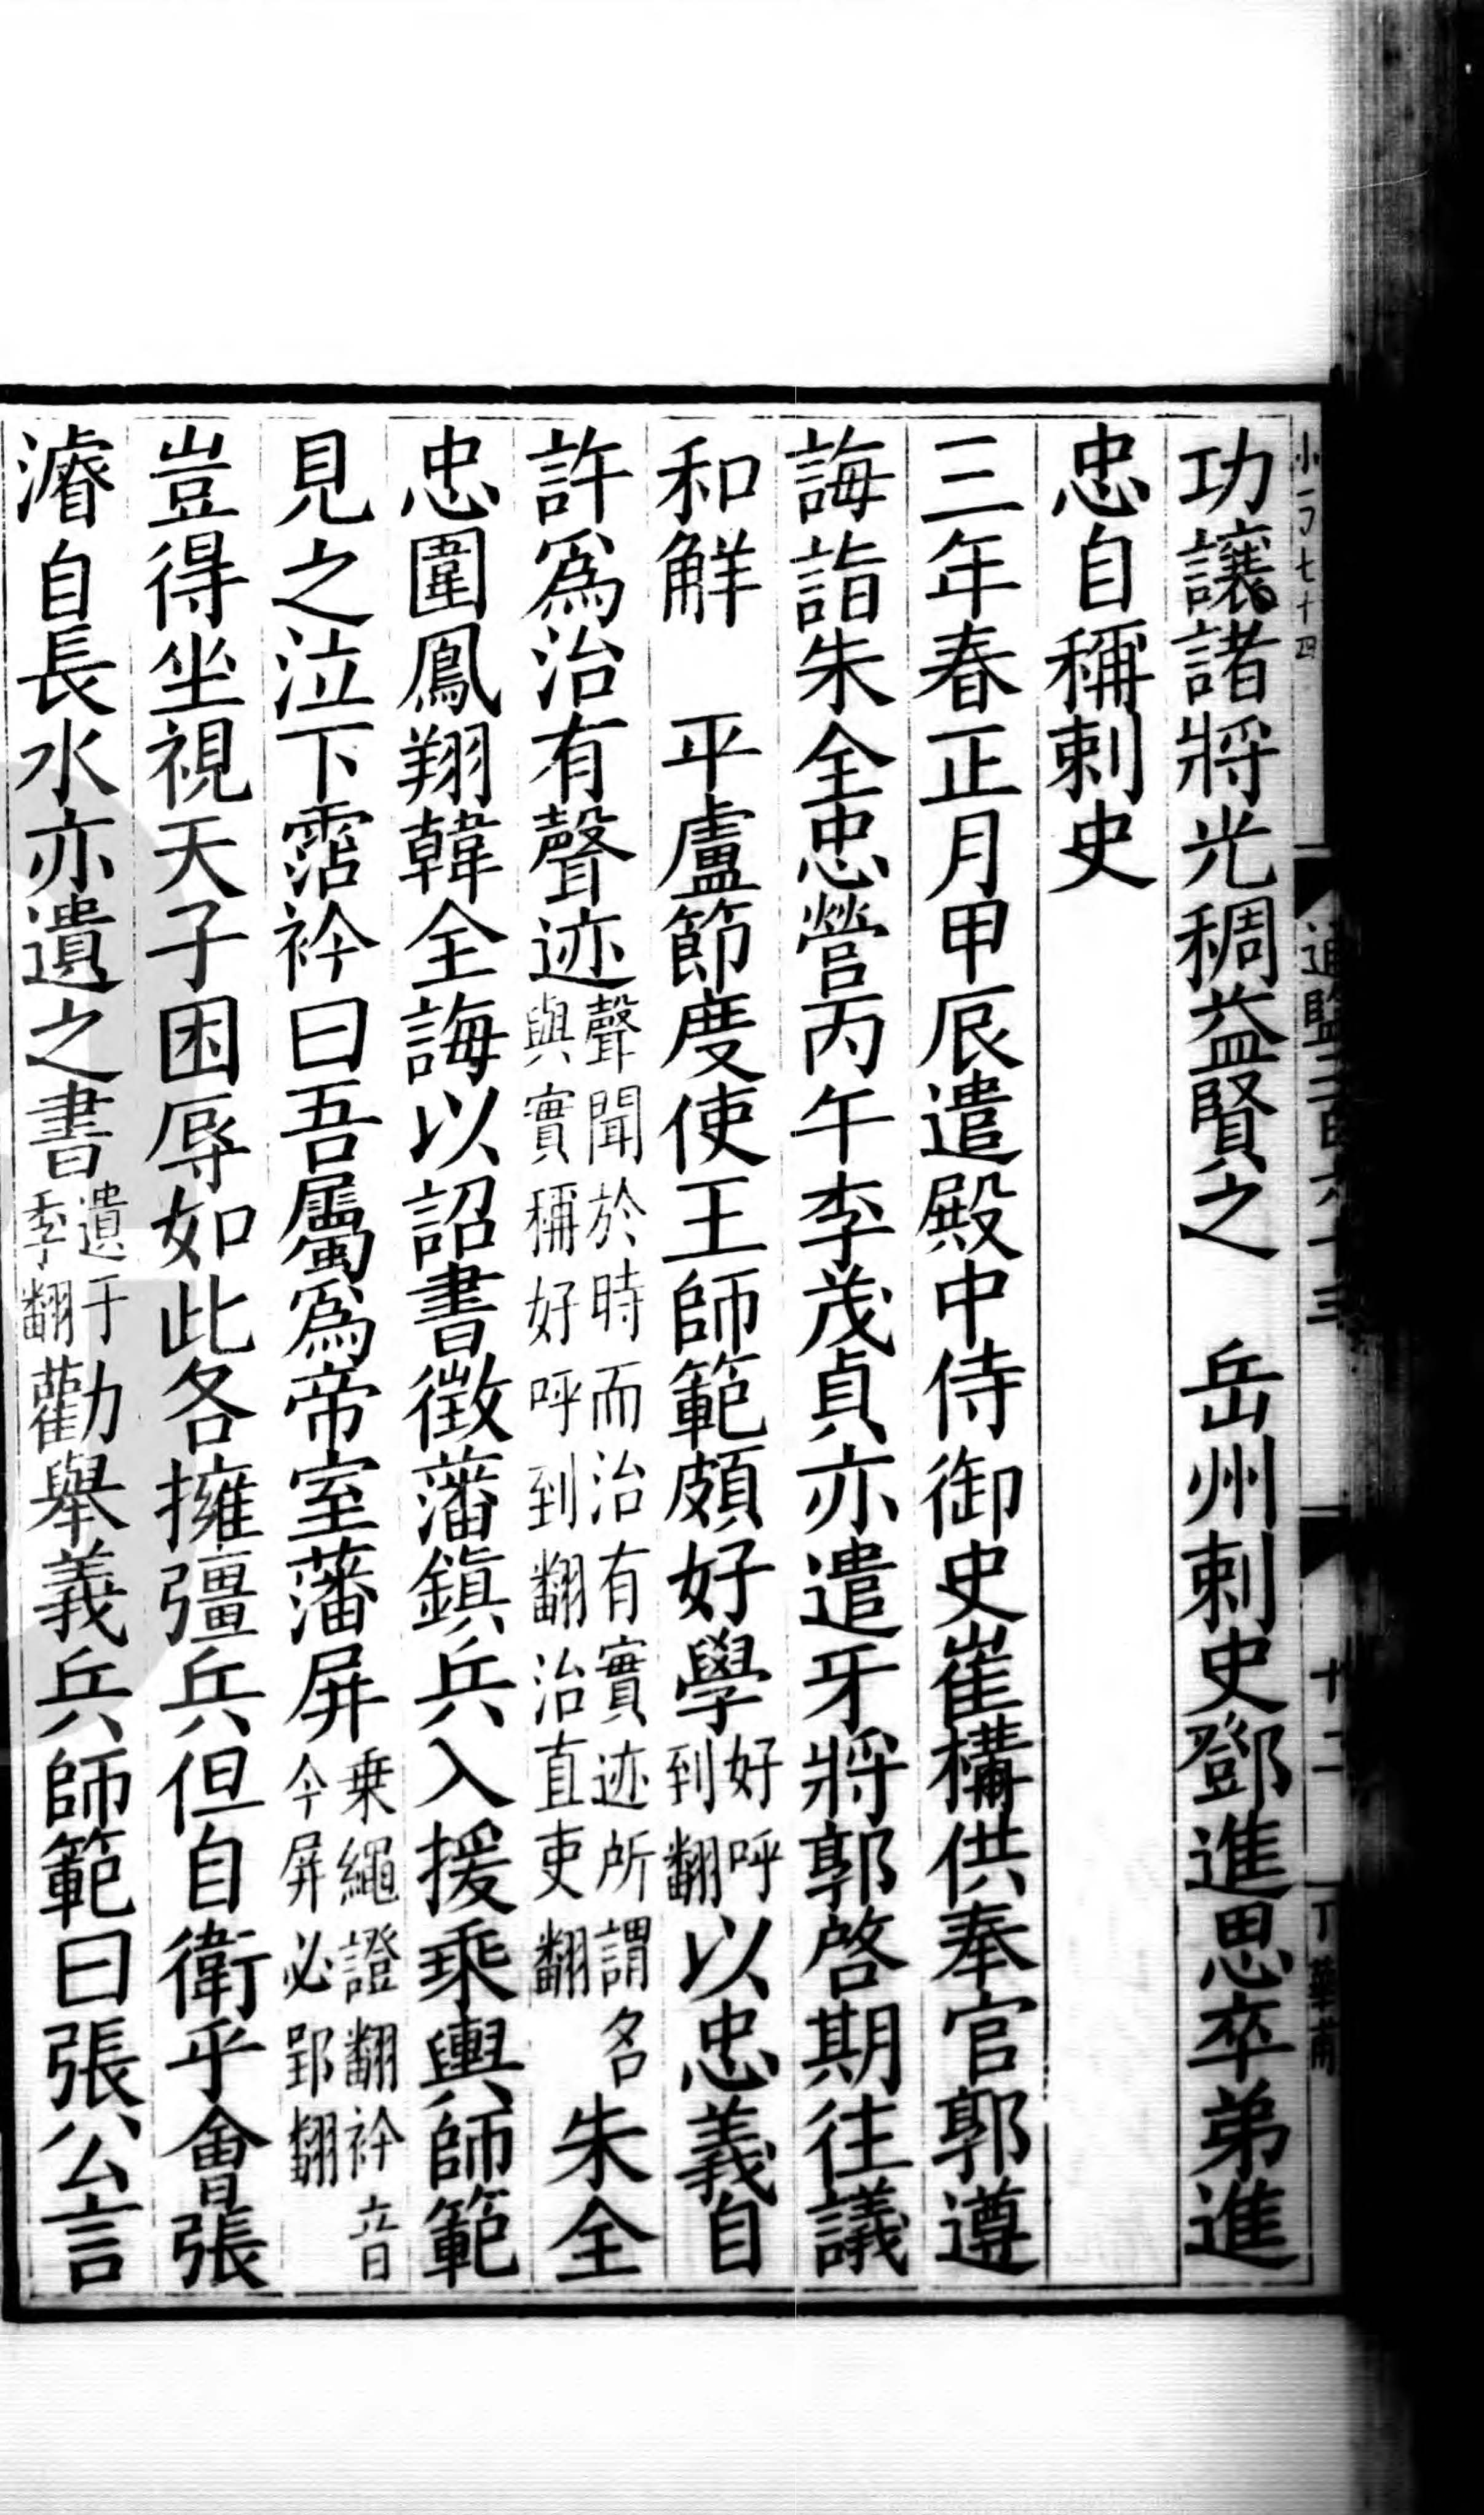 功讓諸將光稠益賢之　岳州刺史鄧進思卒弟進
忠自稱刺史
三年春正月甲辰遣殿中侍御史崔構供奉官郭遵
誨詣朱全忠營丙午李茂貞亦遣牙將郭啓期往議
和解　平盧節度使王師範頗好學好呼到翻以忠義自
許爲治有聲迹聲聞於時而治有實迹所謂名與實稱好呼到翻治直吏翻朱全
忠圍鳳翔韓全誨以詔書徵藩鎮兵入援乘輿師範
見之泣下霑衿曰吾屬爲帝室藩屏乗繩證翻衿音今屏必郢翻
豈得坐視天子困辱如此各擁彊兵但自衛乎會張
濬自長水亦遺之書遺于季翻勸舉義兵師範曰張公言